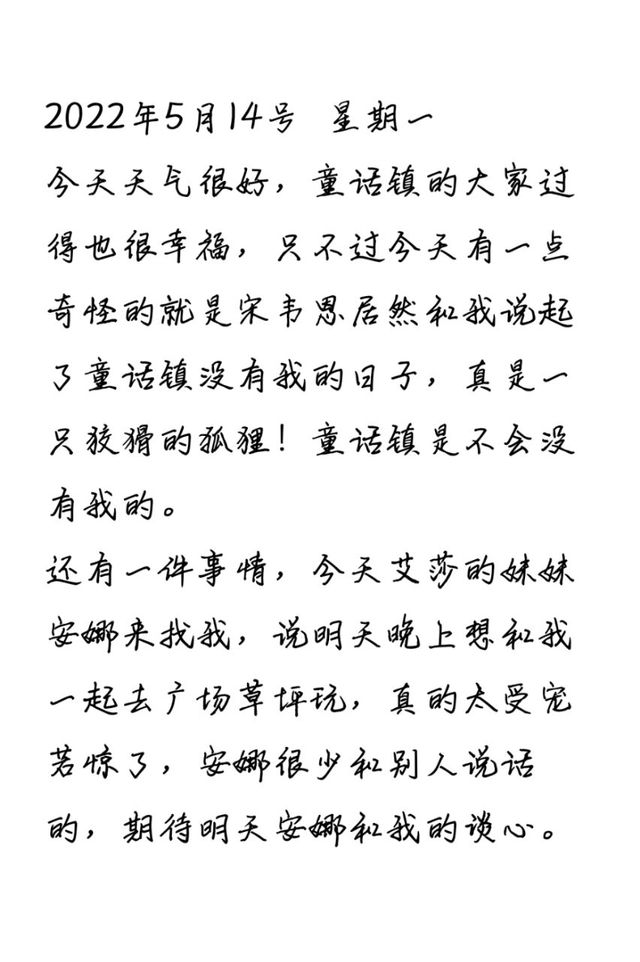 2022年5月14号 星期一
今天天气很好，童话镇的大家过
得也很幸福，只不过今天有一点
奇怪的就是宋韦恩居然和我说起
了童话镇没有我的日子，真是一
只狡猾的狐狸！童话镇是不会没
有我的。
还有一件事情，今天艾莎的妹妹
安娜来找我，说明天晚上想和我
一起去广场草坪玩，真的太受宠
若惊了，安娜很少和别人说话
的，期待明天安娜和我的谈心。